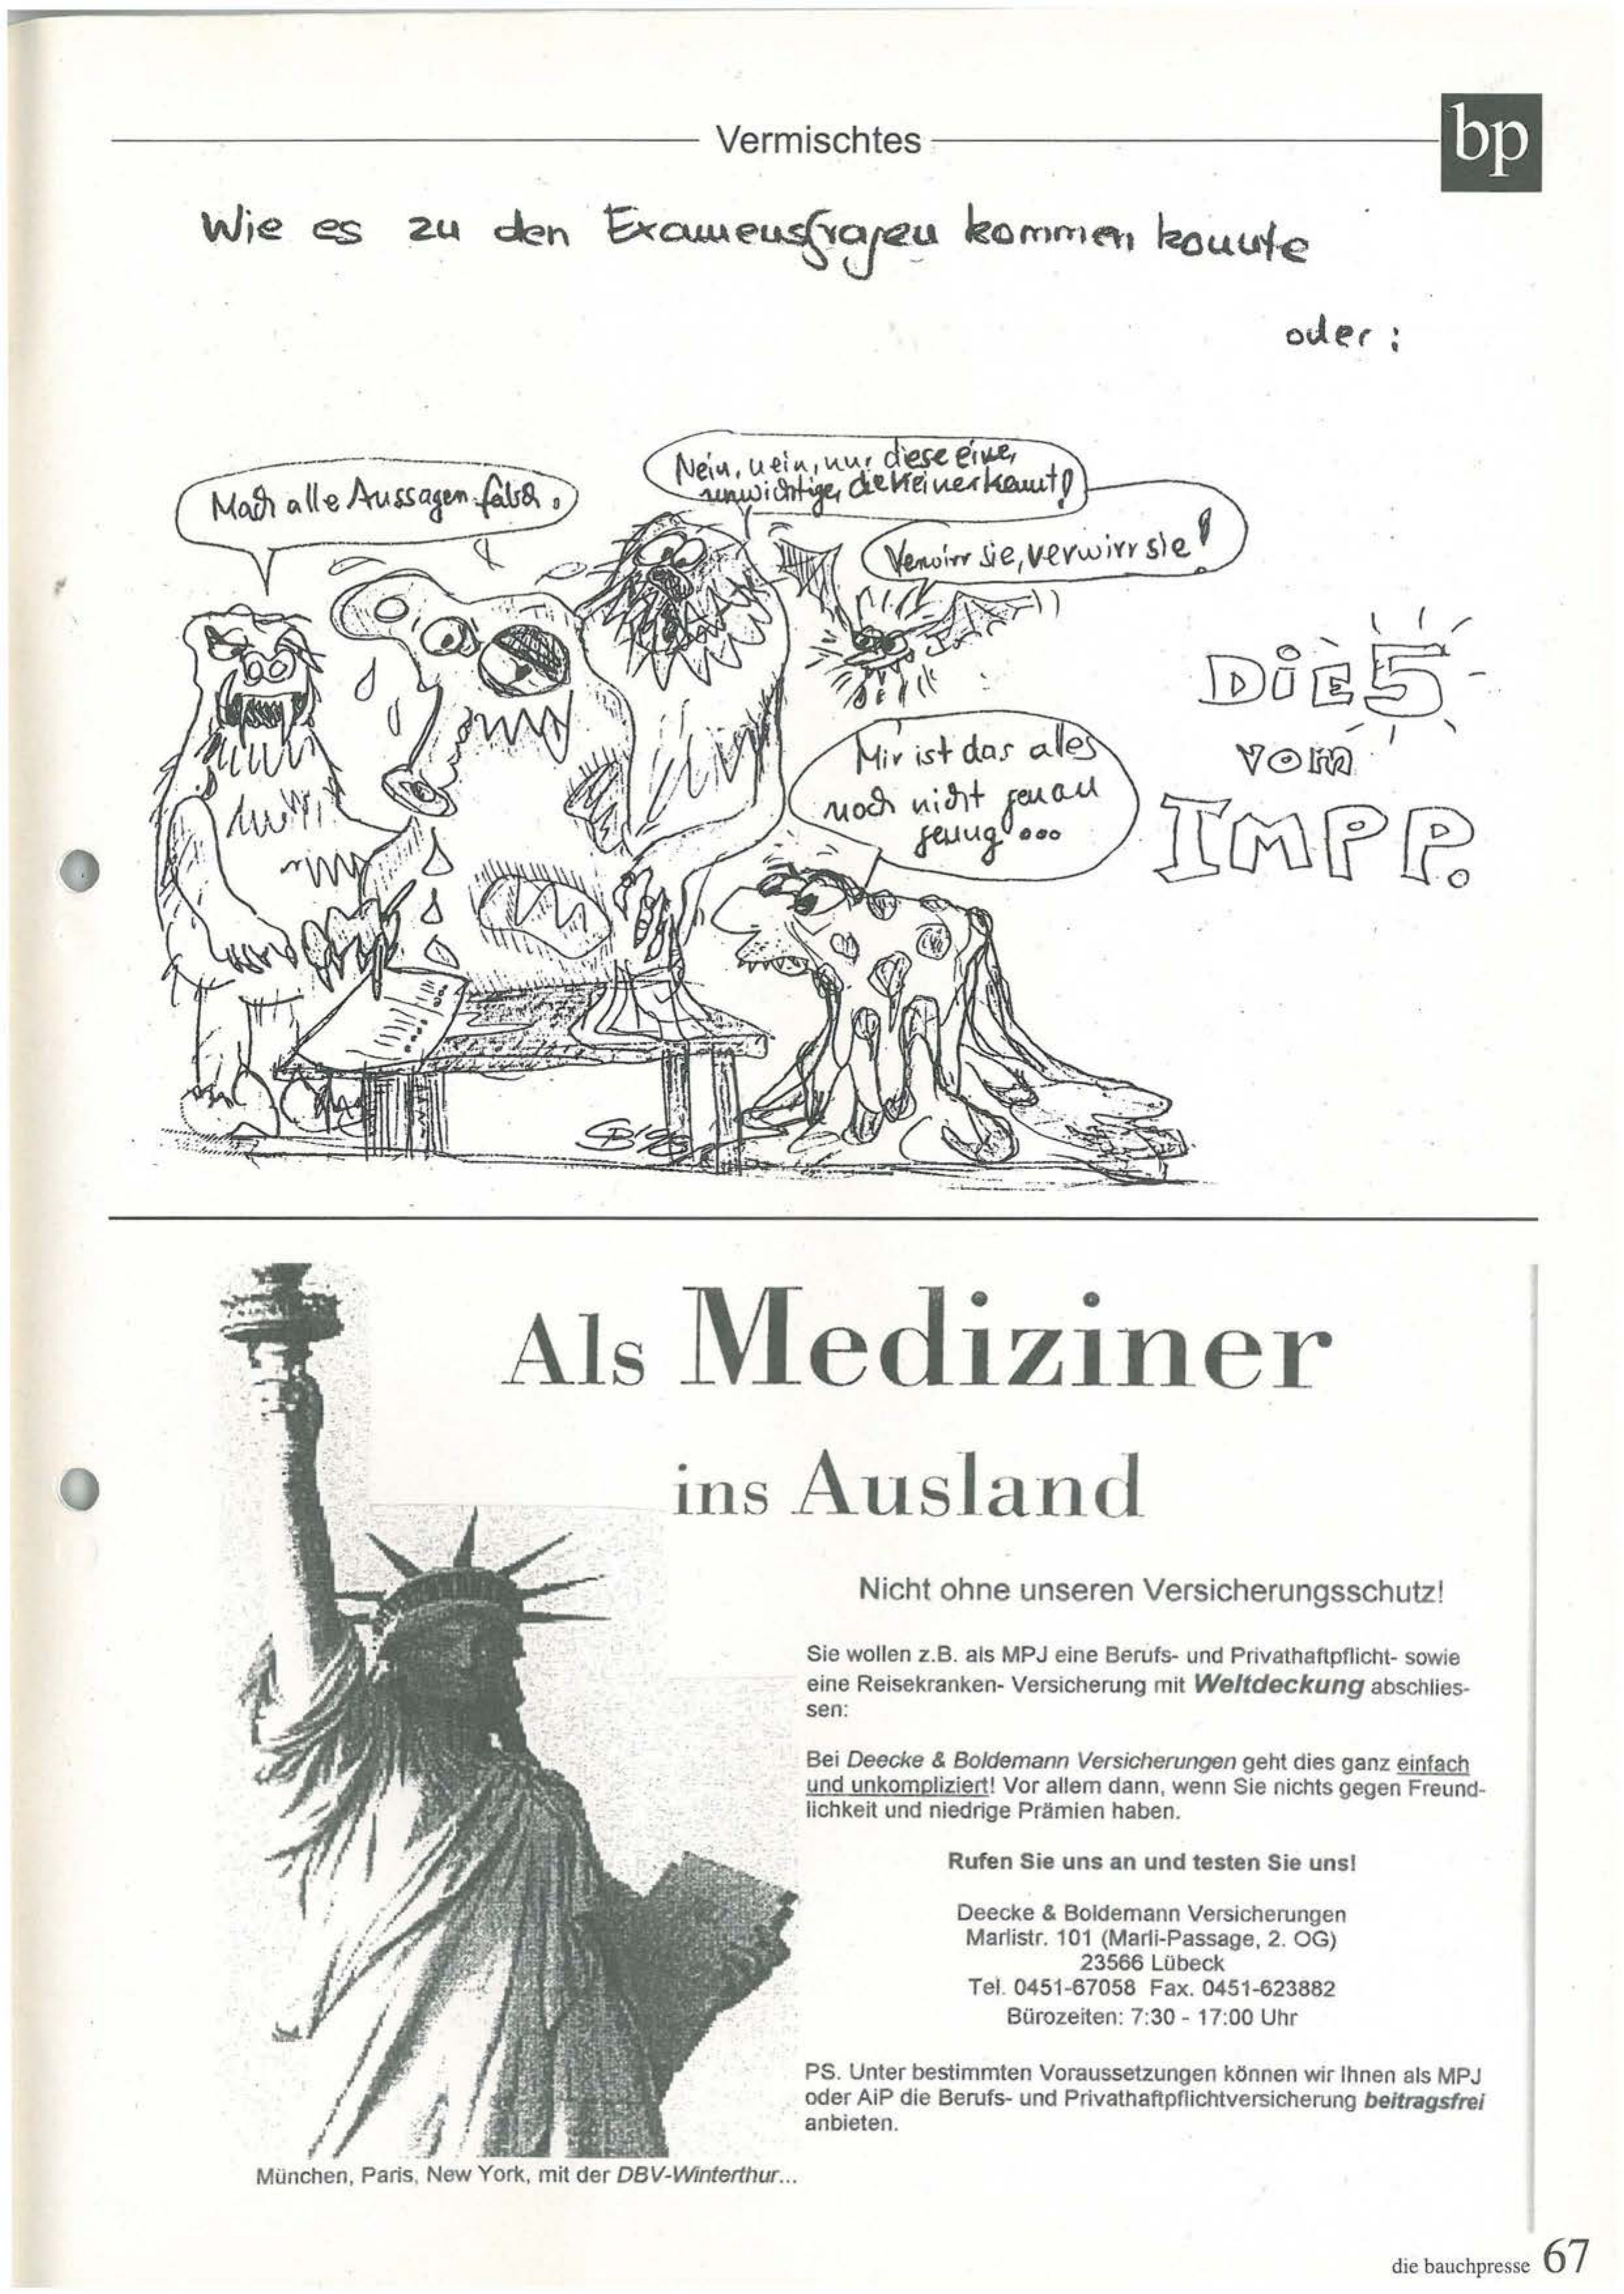 Vermischtes
bp
Wie es zu den Examensfragen kommen konnte
oder:
Mach alle Aussagen falsch.
Nein, nein, nur diese eine,
unwichtige, die keiner kennt!
Verwirr sie, verwirr sie!
Mir ist das alles
noch nicht genau
genug...
DiE 5
vom
IMPP.
SB'98
Als Mediziner
ins Ausland
Nicht ohne unseren Versicherungsschutz!
Sie wollen z.B. als MPJ eine Berufs- und Privathaftpflicht- sowie
eine Reisekranken- Versicherung mit Weltdeckung abschlies-
sen:
Bei Deecke & Boldemann Versicherungen geht dies ganz einfach
und unkompliziert! Vor allem dann, wenn Sie nichts gegen Freund-
lichkeit und niedrige Prämien haben.
Rufen Sie uns an und testen Sie uns!
Deecke & Boldemann Versicherungen
Marlistr. 101 (Marli-Passage, 2. OG)
23566 Lübeck
Tel. 0451-67058 Fax. 0451-623882
Bürozeiten: 7:30 - 17:00 Uhr
PS. Unter bestimmten Voraussetzungen können wir Ihnen als MPJ
oder AiP die Berufs- und Privathaftpflichtversicherung beitragsfrei
anbieten.
München, Paris, New York, mit der DBV-Winterthur...
die bauchpresse 67